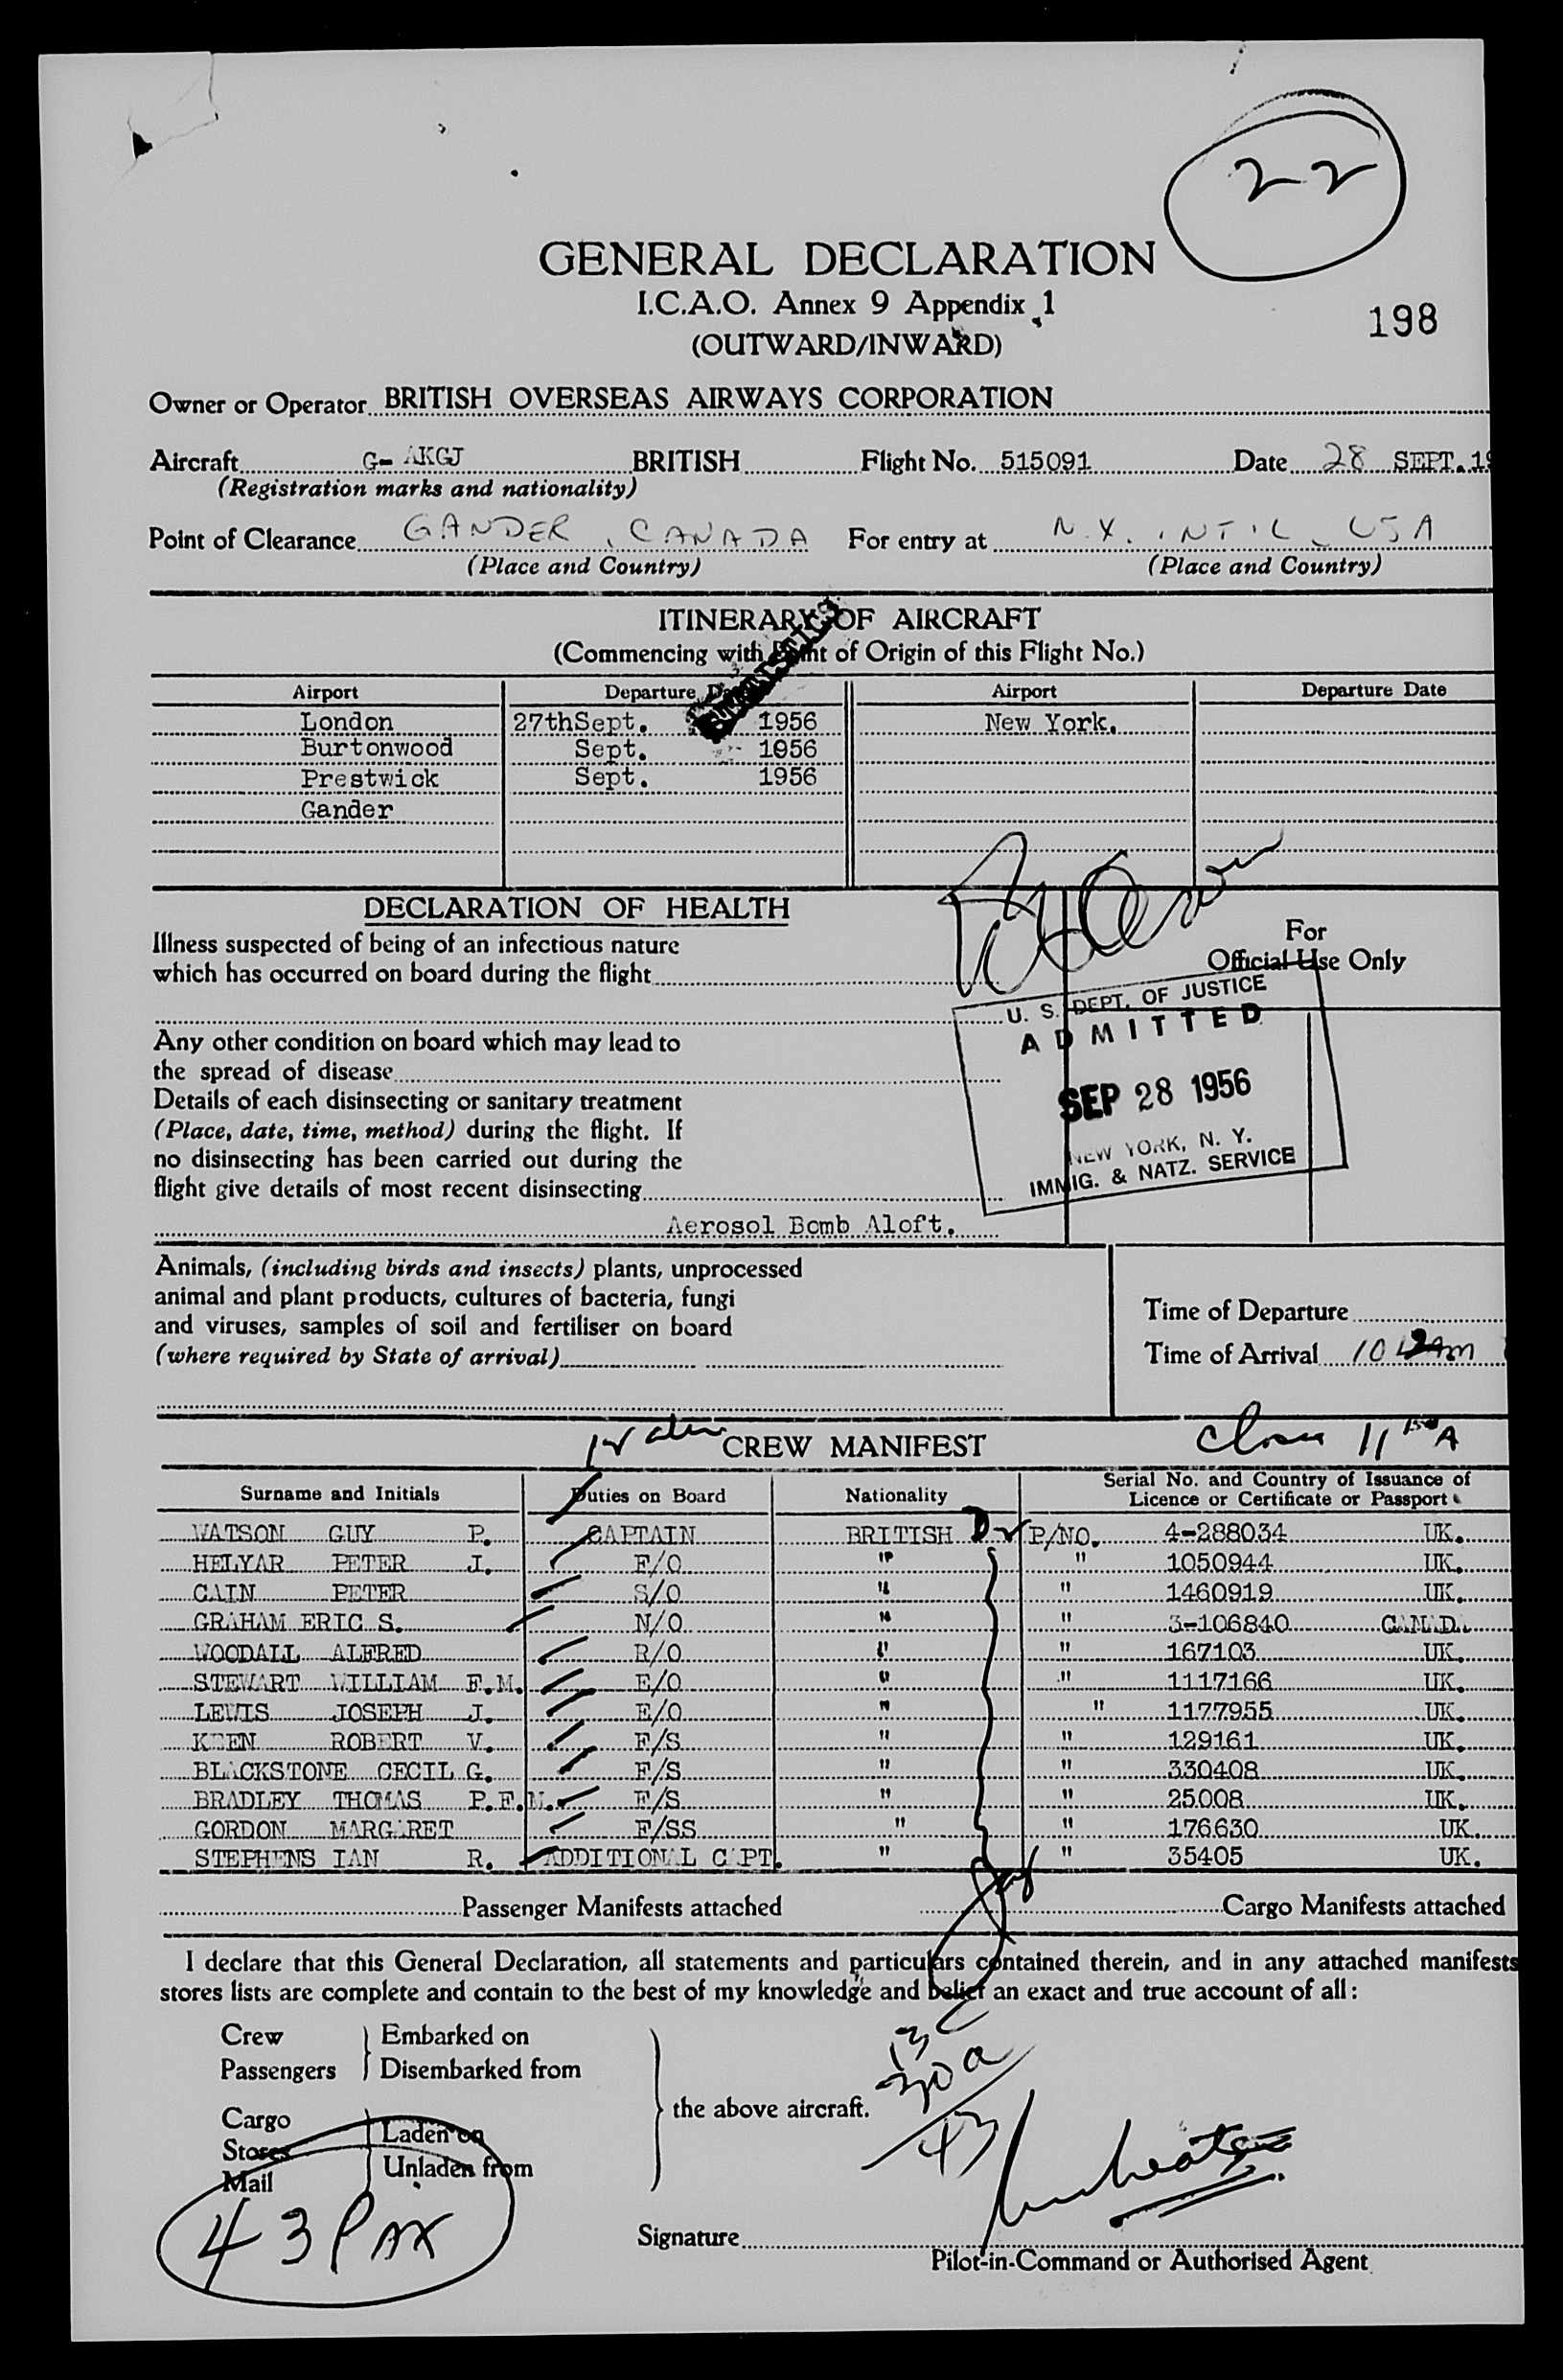 22
GENERAL DECLARATION
I.C.A.O. Annex 9 Appendix 1
(OUTWARD/INWARD)
198
Owner or Operator BRITISH OVERSEAS AIRWAYS CORPORATION
Aircraft G- AKGJ BRITISH Flight No. 515091 Date 28 SEPT. 19
(Registration marks and nationality)
Point of Clearance GANDER, CANADA For entry at N.Y. INT'L, USA
(Place and Country) (Place and Country)
ITINERARY OF AIRCRAFT
(Commencing with Point of Origin of this Flight No.)
Airport Departure Airport Departure Date
London 27thSept. 1956 New York.
Burtonwood Sept. 1956
Prestwick Sept. 1956
Gander
DECLARATION OF HEALTH
Illness suspected of being of an infectious nature
which has occurred on board during the flight
For
Official Use Only
U. S. DEPT. OF JUSTICE
ADMITTED
SEP 28 1956
NEW YORK, N. Y.
IMMIG. & NATZ. SERVICE
Any other condition on board which may lead to
the spread of disease
Details of each disinsecting or sanitary treatment
(Place, date, time, method) during the flight. If
no disinsecting has been carried out during the
flight give details of most recent disinsecting
Aerosol Bomb Aloft.
Animals, (including birds and insects) plants, unprocessed
animal and plant products, cultures of bacteria, fungi
and viruses, samples of soil and fertiliser on board
(where required by State of arrival)
Time of Departure
Time of Arrival 10 AM
CREW MANIFEST
Surname and Initials Duties on Board Nationality Serial No. and Country of Issuance of
Licence or Certificate or Passport
WATSON GUY P. CAPTAIN BRITISH P/NO. 4-288034 UK.
HELYAR PETER J. F/O " " 1050944 UK.
CAIN PETER S/O " " 1460919 UK.
GRAHAM ERIC S. N/O " " 3-106840 CANADA.
WOODALL ALFRED R/O " " 167103 UK.
STEWART WILLIAM F.M. E/O " " 1117166 UK.
LEWIS JOSEPH J. E/O " " 1177955 UK.
KEEN ROBERT V. F/S " " 129161 UK.
BLACKSTONE CECIL G. F/S " " 330408 UK.
BRADLEY THOMAS P.F.M. F/S " " 25008 UK.
GORDON MARGARET F/SS " " 176630 UK.
STEPHENS IAN R. ADDITIONAL CAPT. " " 35405 UK.
Passenger Manifests attached Cargo Manifests attached
I declare that this General Declaration, all statements and particulars contained therein, and in any attached manifests
stores lists are complete and contain to the best of my knowledge and belief an exact and true account of all:
Crew Embarked on
Passengers Disembarked from
the above aircraft.
Cargo Laden on
Stores
Mail Unladen from
13
30 a
43
43 PAX
Signature
Pilot-in-Command or Authorised Agent